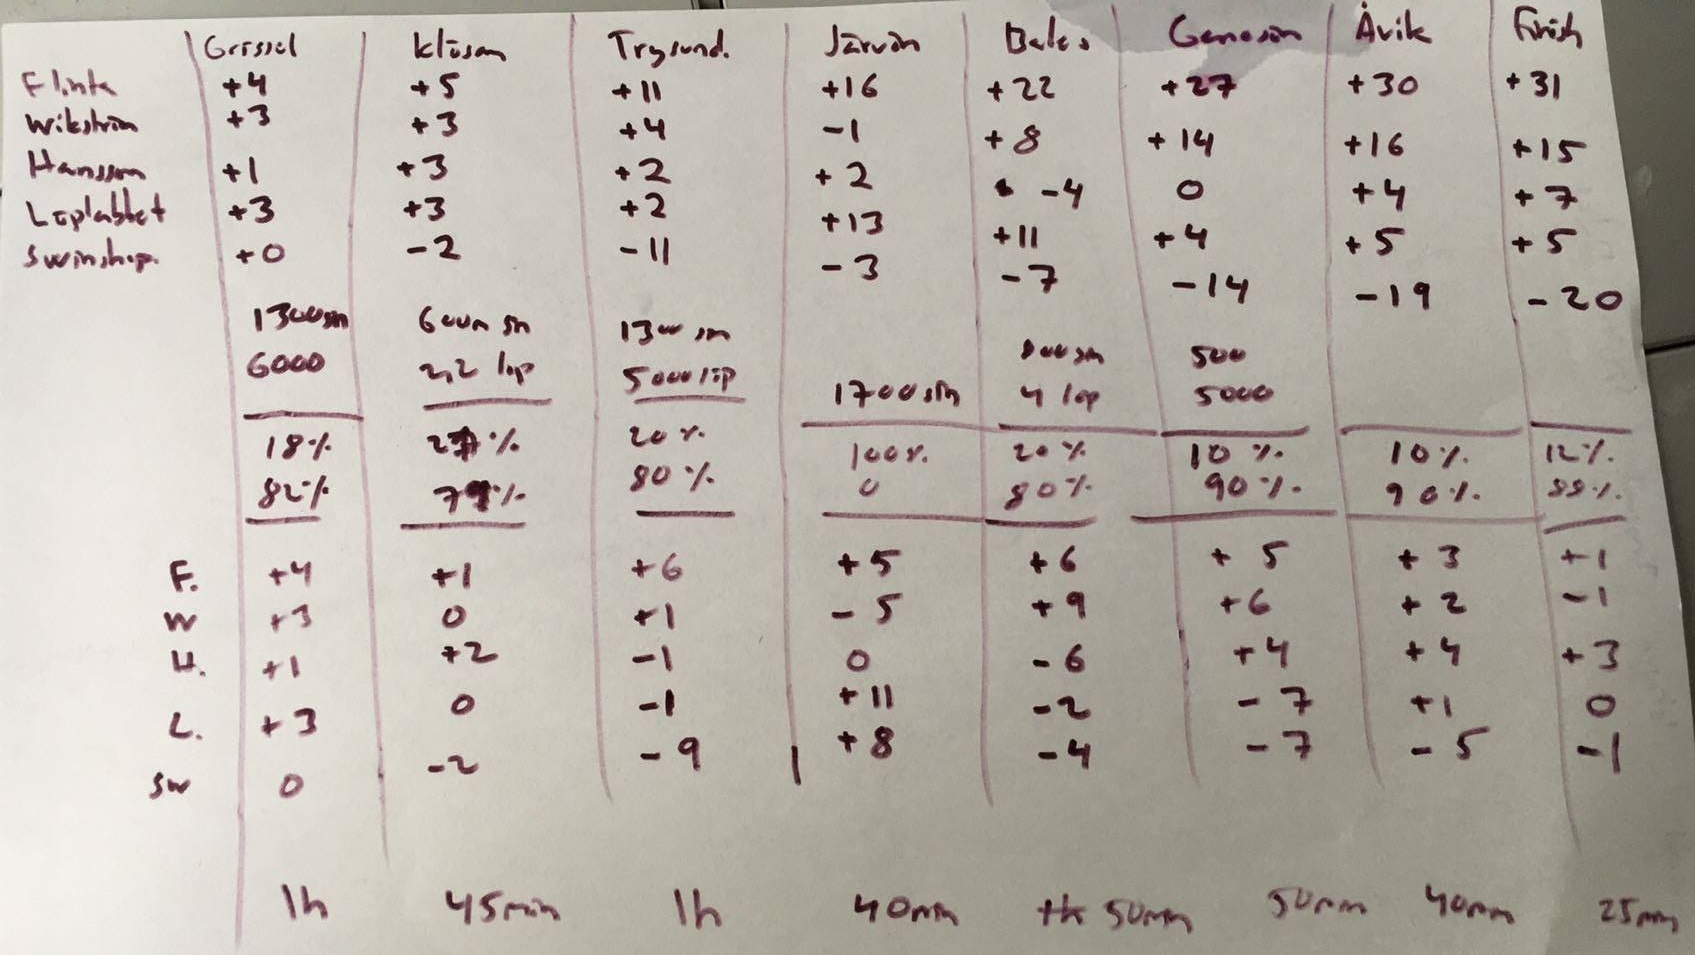 Grissel Klösan Trysund. Järvön Bales Genesön Åvik Finish
Flinta +4 +5 +11 +16 +22 +27 +30 +31
Wikström +3 +3 +4 -1 +8 +14 +16 +15
Hansson +1 +3 +2 +2 -4 0 +4 +7
Löplabbet +3 +3 +2 +13 +11 +4 +5 +5
Swimshop. +0 -2 -11 -3 -7 -14 -19 -20
1300sm 600m sm 1300 sm 800 sm 500
6000 2,2 löp 5000 löp 1700 sim 4 löp 5000
18% % 20% 100% 20% 10% 10% 12%
82% % 80% 0 80% 90% 90% 88%
F. +4 +1 +6 +5 +6 +5 +3 +1
W +3 0 +1 -5 +9 +6 +2 -1
H. +1 +2 -1 0 -6 +4 +4 +3
L. +3 0 -1 +11 -2 -7 +1 0
SW 0 -2 -9 +8 -4 -7 -5 -1
1h 45min 1h 40min 50min 50min 40min 25min